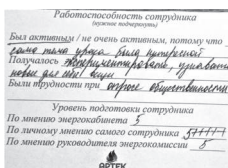 Работоспособность сотрудника
(нужное подчеркнуть)
Был активным / не очень активным, потому что
сама тема урока была интересной
Получалось экспериментировать, узнавать
новые для себя вещи
Были трудности при опросе общественности
Уровень подготовки сотрудника
По мнению энергокабинета 5
По личному мнению самого сотрудника 5
По мнению руководителя энергокомиссии 5
АРТЕК